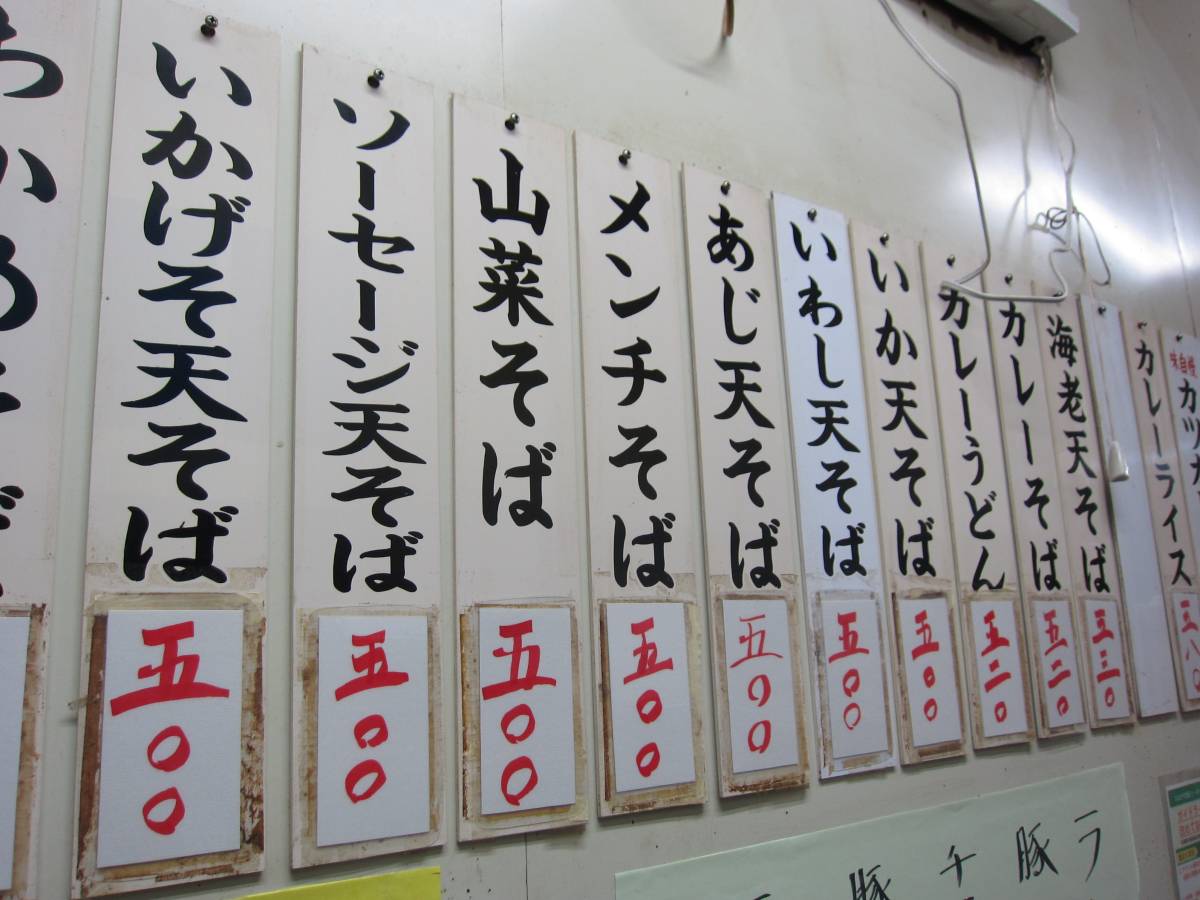 味自慢
カレーライス
海老天そば
五三〇
カレーそば
五二〇
カレーうどん
五二〇
いか天そば
五〇〇
いわし天そば
五〇〇
あじ天そば
五〇〇
メンチそば
五〇〇
山菜そば
五〇〇
ソーセージ天そば
五〇〇
いかげそ天そば
五〇〇
ラ
豚
チ
豚